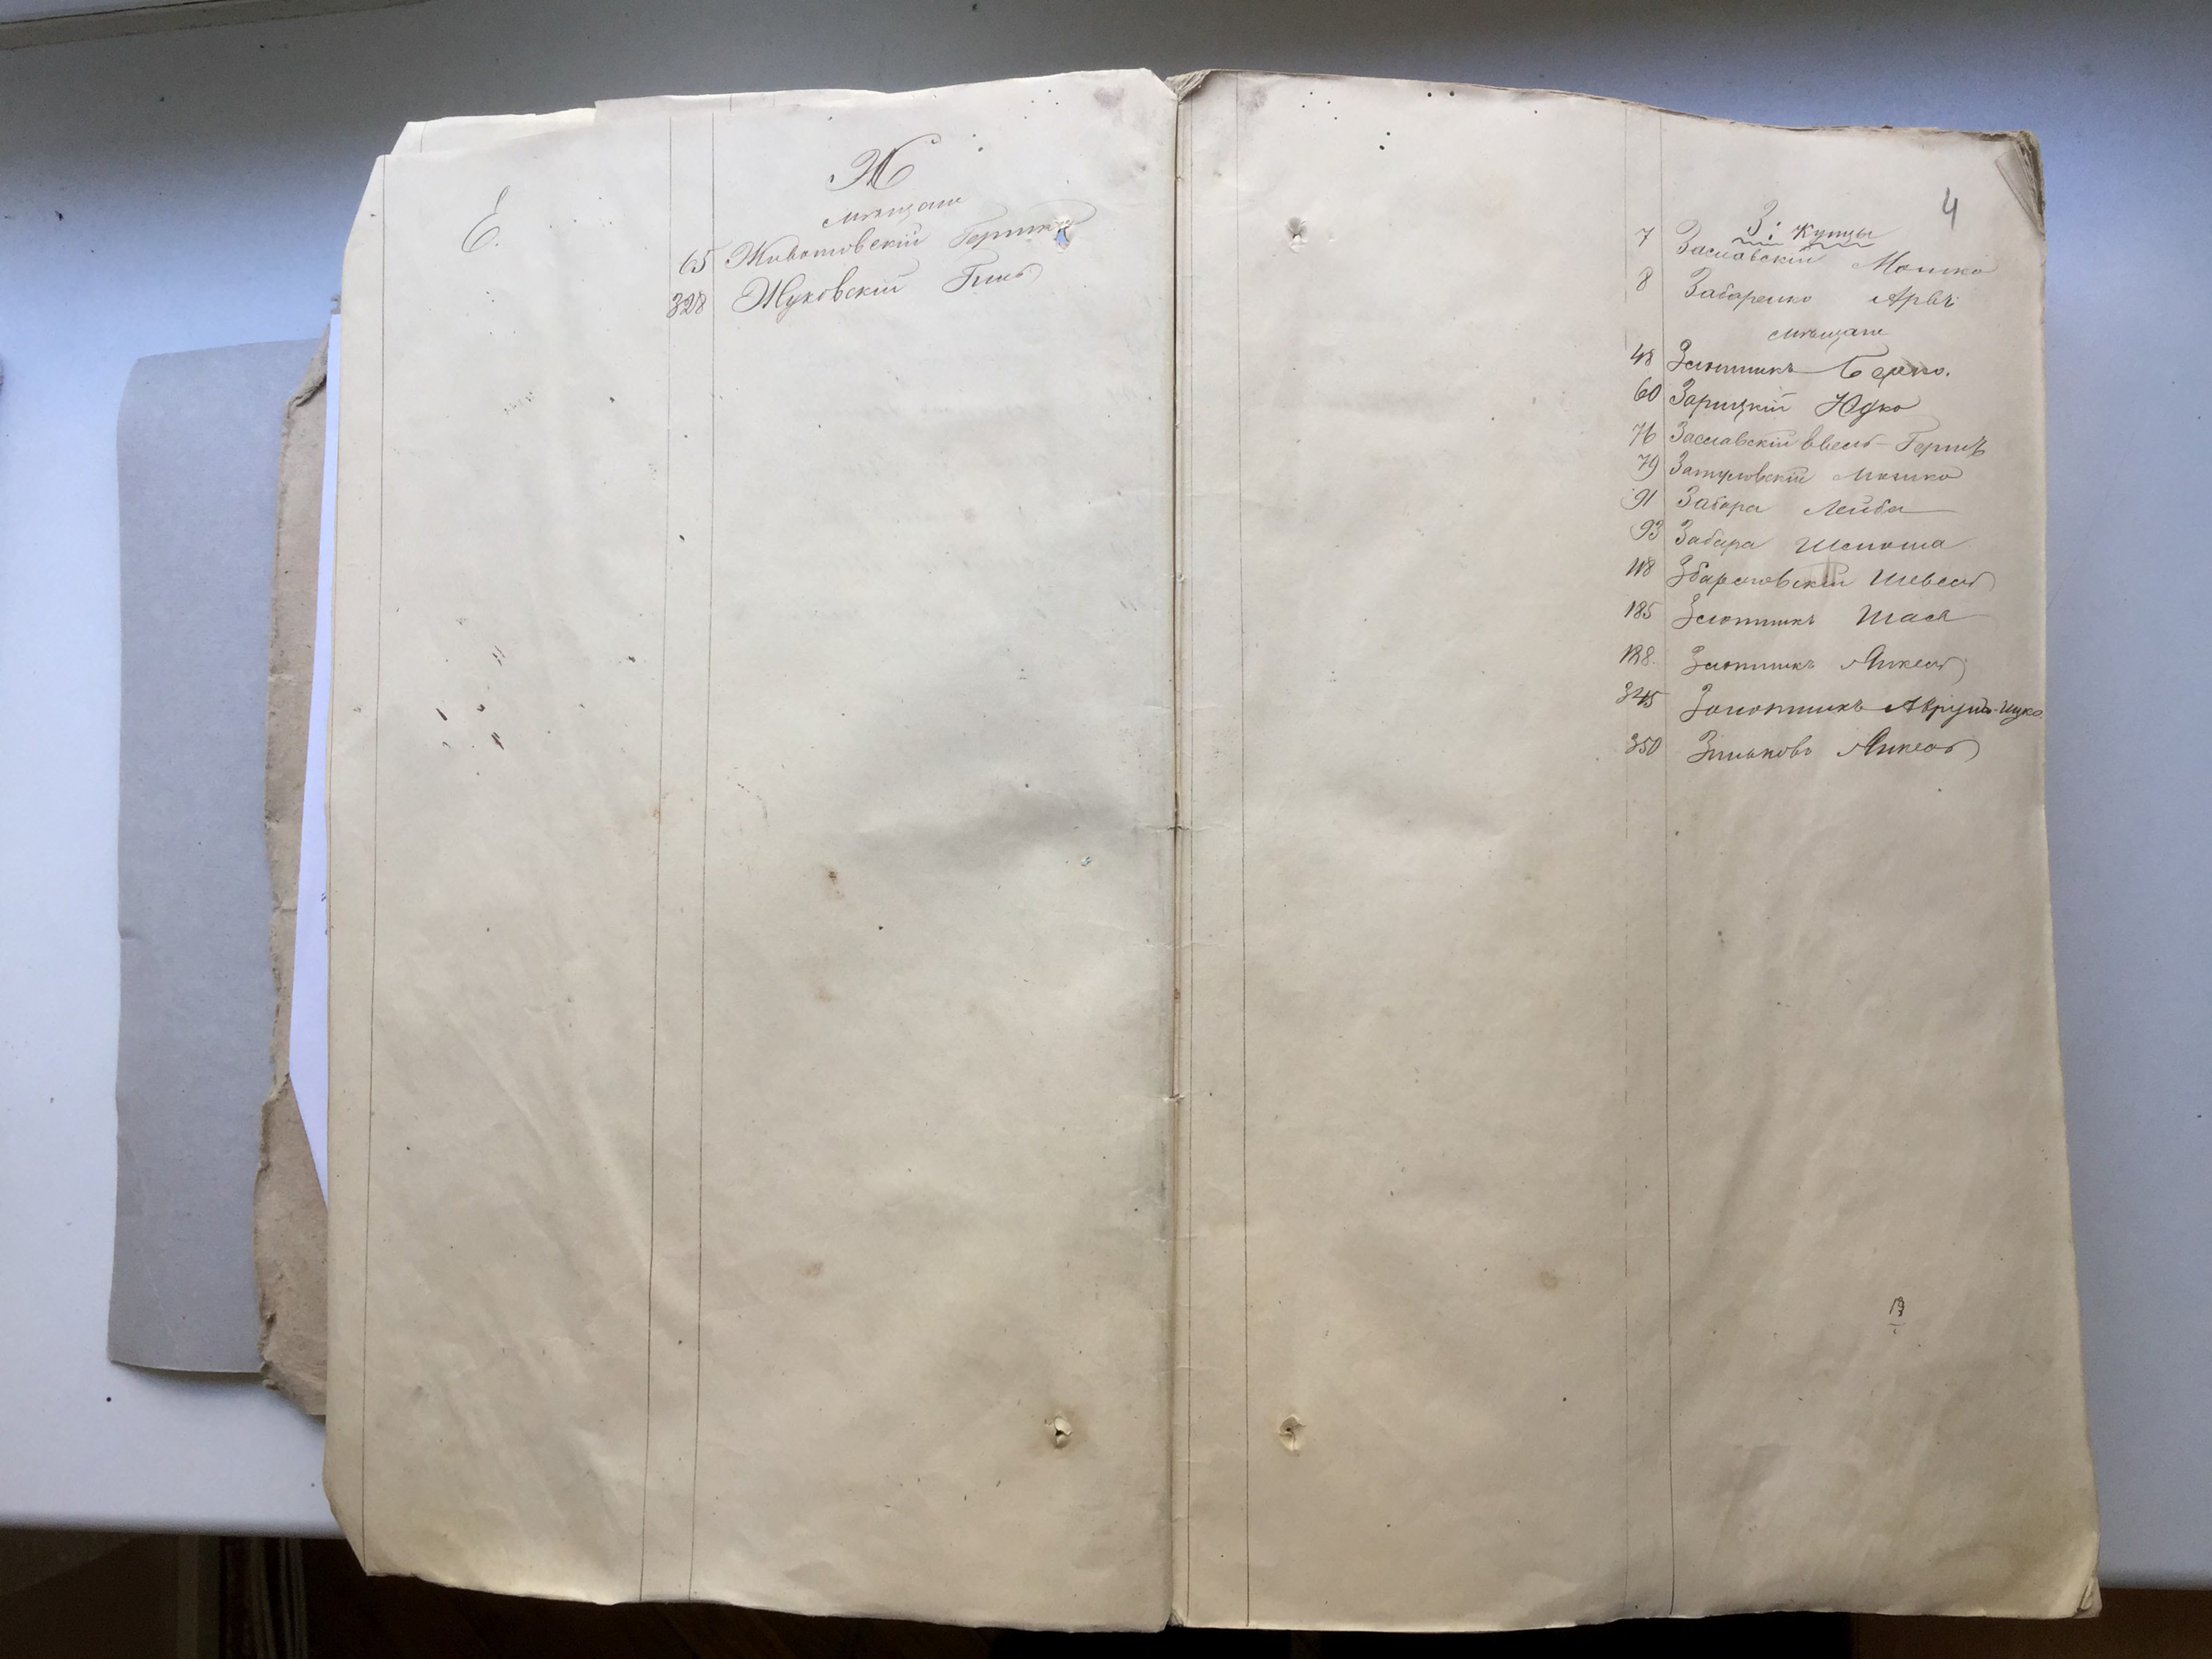 Е.
Ж
мѣщане
65 Животовскій Гершко
328 Жуковскій
4
З: Купцы
7 Заславскій Мошко
8 Забаренко Арье
мѣщане
48 Злотникъ Берко.
60 Зарицкій Юдко
76 Заславскій Ввель-Гершъ
79 Затуловскій Мошко
91 Забара Лейба
93 Забара Шлиома
118 Збаразовскій Шевель
185 Злотникъ Шая
188. Злотникъ Янкель
345 Золотникъ Аврумъ-Ицко
350 Зиньковъ Янкель
19